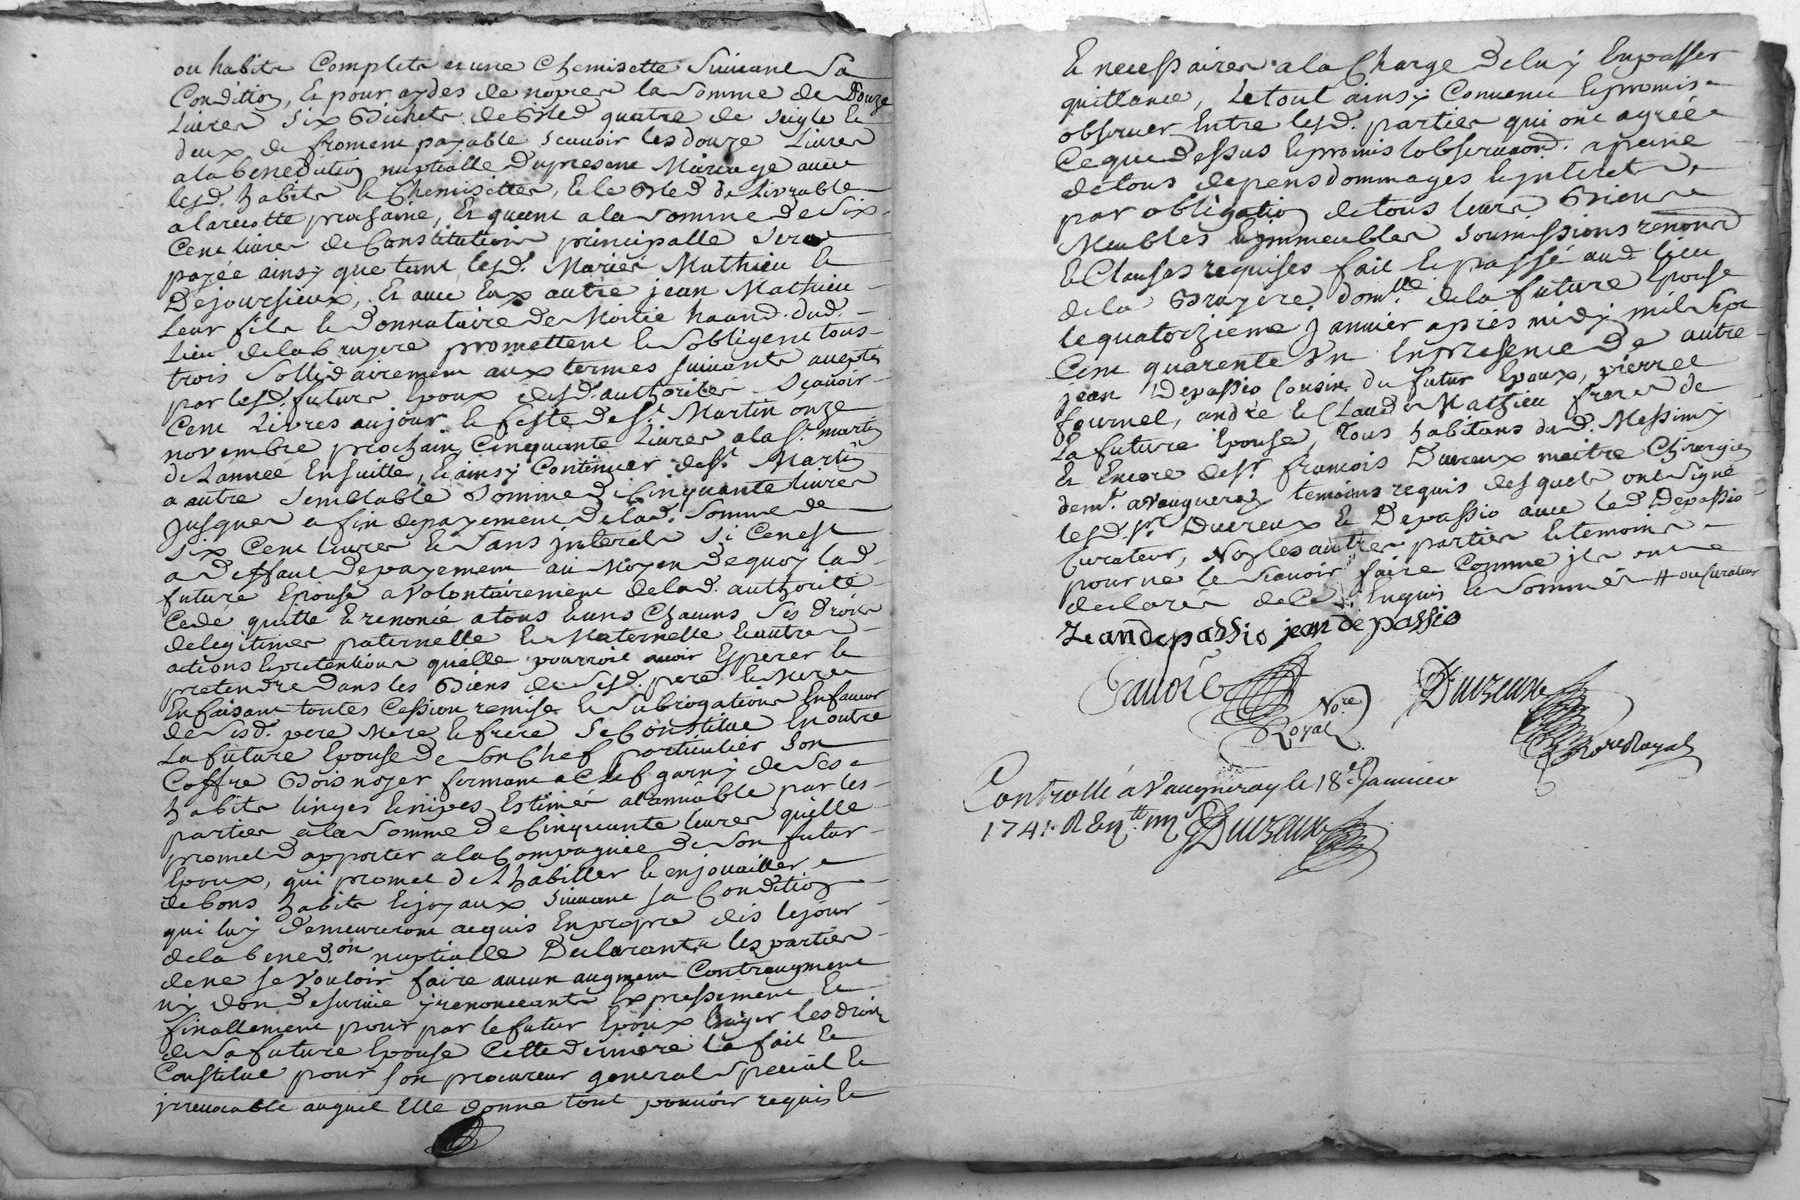 ou habits Complets et une Chemisette Suivant Sa
Condition, Et pour aydes de nopces la Somme de Douze
Livres Six Bichets de Bled quatre de Seigle Et
deux de froment payable Scavoir les douze Livres
a la benediction nuptialle du present Mariage avec
lesd. habits & Chemisettes, Et le Bled de Livrable
a la recolte prochaine, Et quant a la Somme de Six
Cent livres de Constitution principalle Sera
payée ainsy que tant lesd. Mariés Mathieu Et
Dejoursieux, Et avec Eux autre jean Mathieu
Leur fils & Donnataire de Moitié dud.
Lieu de la bruyere promettent & Sobligent tous
trois Sollidairement aux termes Suivants acceptés
par lesd. futurs Epoux desd. authorités Scavoir
Cent Livres au jour & feste de St. Martin onze
novembre prochain Cinquante Livres a la St. martin
de Lannée Ensuitte, & ainsy Continuer de St. Martin
a autre Semblable Somme de Cinquante livres
Jusques a fin de payement de lad. Somme de
Six Cent livres Et Sans jnterets Si Cenest
a deffaut de payement au Moyen de quoy lad.
future Epouse a Volontairement de lad. authorité
Cedé quitté & renoncé a tous Et uns Chacuns Ses droits
de legitimes paternelle & Maternelle & autres
actions & pretentions quelle pourroit avoir Esperer Et
pretendre dans les Biens de Sesd. pere & Mere
En faisant toutes Cession remises & Subrogations En faveur
de Sesd. pere Mere & frere Se Constitue En outre
La future Epouse de Son Chef particulier Son
Coffre Bois noyer fermant a Clef garny de Ses
habits linges & nipes Estimés a lamiable par les
parties a la Somme de Cinquante livres quelle
promet d apporter a la Compagnie de Son futur
Epoux, qui promet de Lhabiller & enjouailler
de bons habits & joyaux Suivant Sa Condition
qui luy demeureront acquis En propre dès le jour
de la bened.on nuptialle Declarants les parties
de ne Se Vouloir faire aucun augment Contreaugment
ny don de Survie y renonceants Expressement Et
finallement pour par le futur Epoux Exiger les droits
de Sa future Epouse Cette derniere La fait Et
Constitué pour Son procureur general Special Et
jrrevocable auquel Elle donne tout pouvoir requis Et
Et necessaires a la Charge de luy En passer
quittance, Le tout ainsy Convenu & promis
observer Entre lesd. parties qui ont agréé
Ce que dessus & promis lobserver a peine
de tous depens dommages & jnterets,
par obligation de tous leurs Biens
Meubles & jmmeubles Soumissions renond
& Clauses requises fait & passé aud. lieu
de la Bruyere, dom.lle de la future Epouse
le quatorzieme Janvier apres midy mil Sept
Cent quarente Un En presence de autre
jean Depassio Cousin du futur Epoux, pierre
fournel, andré & Claude Mathieu freres de
La future Epouse, Tous habitans dud. Messimy
Et Encore de Sr. françois Duvreux maitre Chirurgien
demt. a Vaugneray temoins requis desquels ont Signé
lesd. Sr. Duvreux & Depassio avec led. Depassio
Curateur, Non les autres parties & temoins
pour ne le Scavoir faire Comme jls ont
declarés de Ce Enquis & Sommés # ou Curateur
Jeandepassio jean de passio
Duvreux
No.re
Royal
No.re Royal
Controllé a Vaugneray le 18e. Janvier
1741. Duvreux